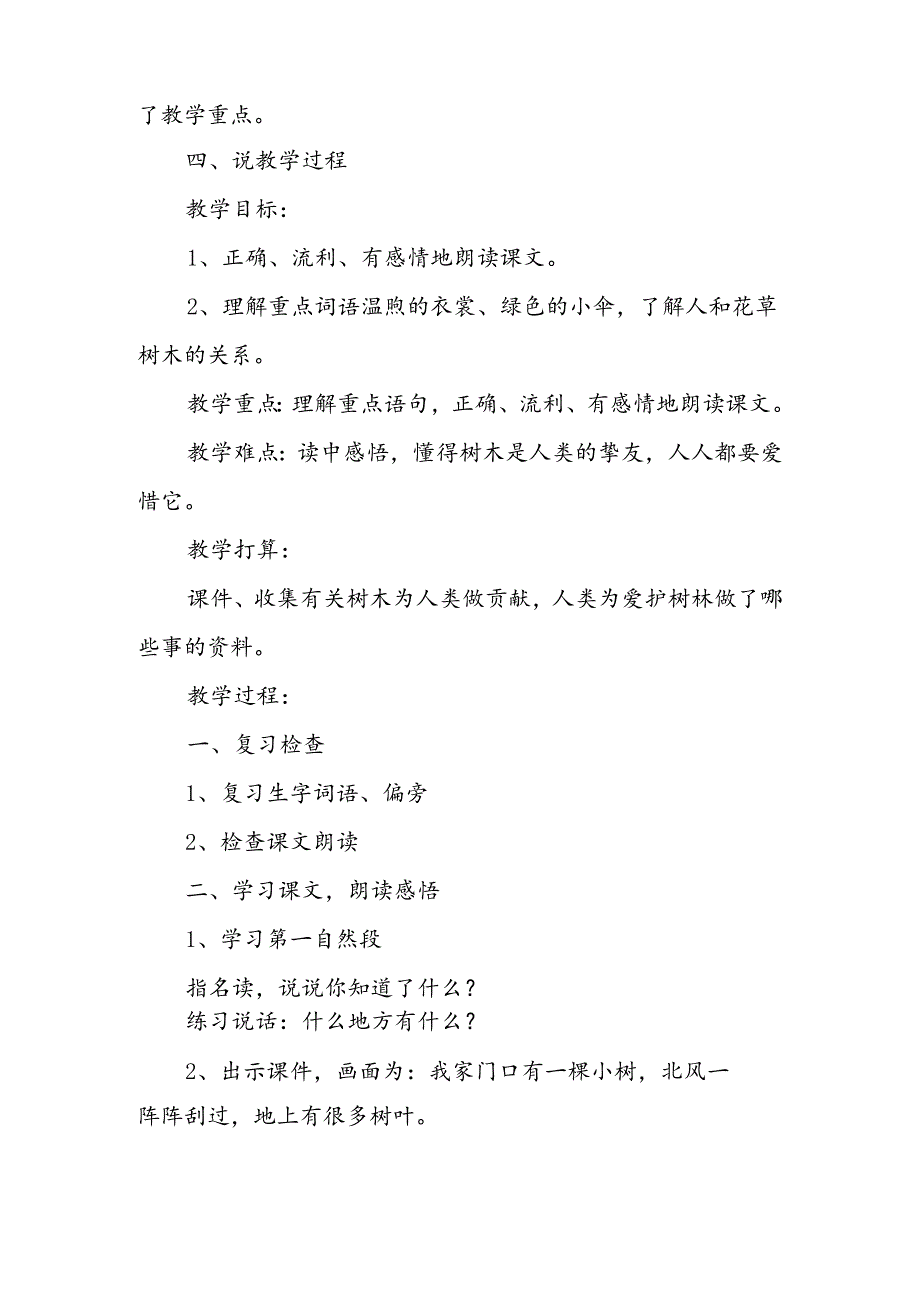 了教学重点。
四、说教学过程
教学目标：
1、正确、流利、有感情地朗读课文。
2、理解重点词语温煦的衣裳、绿色的小伞，了解人和花草
树木的关系。
教学重点：理解重点语句，正确、流利、有感情地朗读课文。
教学难点：读中感悟，懂得树木是人类的挚友，人人都要爱
惜它。
教学打算：
课件、收集有关树木为人类做贡献，人类为爱护树林做了哪
些事的资料。
教学过程：
一、复习检查
1、复习生字词语、偏旁
2、检查课文朗读
二、学习课文，朗读感悟
1、学习第一自然段
指名读，说说你知道了什么？
练习说话：什么地方有什么？
2、出示课件，画面为：我家门口有一棵小树，北风一
阵阵刮过，地上有很多树叶。